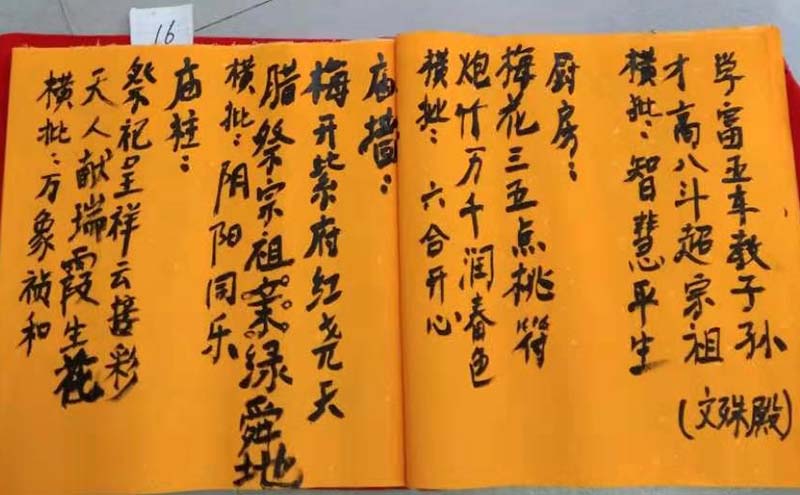 16
学富五车教子孙
才高八斗超宗祖
(文殊殿)
横批：智慧平生
厨房：
梅花三五点桃符
炮竹万千润春色
横批：六合开心
庙墙：
梅开紫府红尧天
腊祭宗祖绿舜地
横批：阴阳同乐
庙柱：
祭祀呈祥云接彩
天人献瑞霞生花
横批：万象祯和